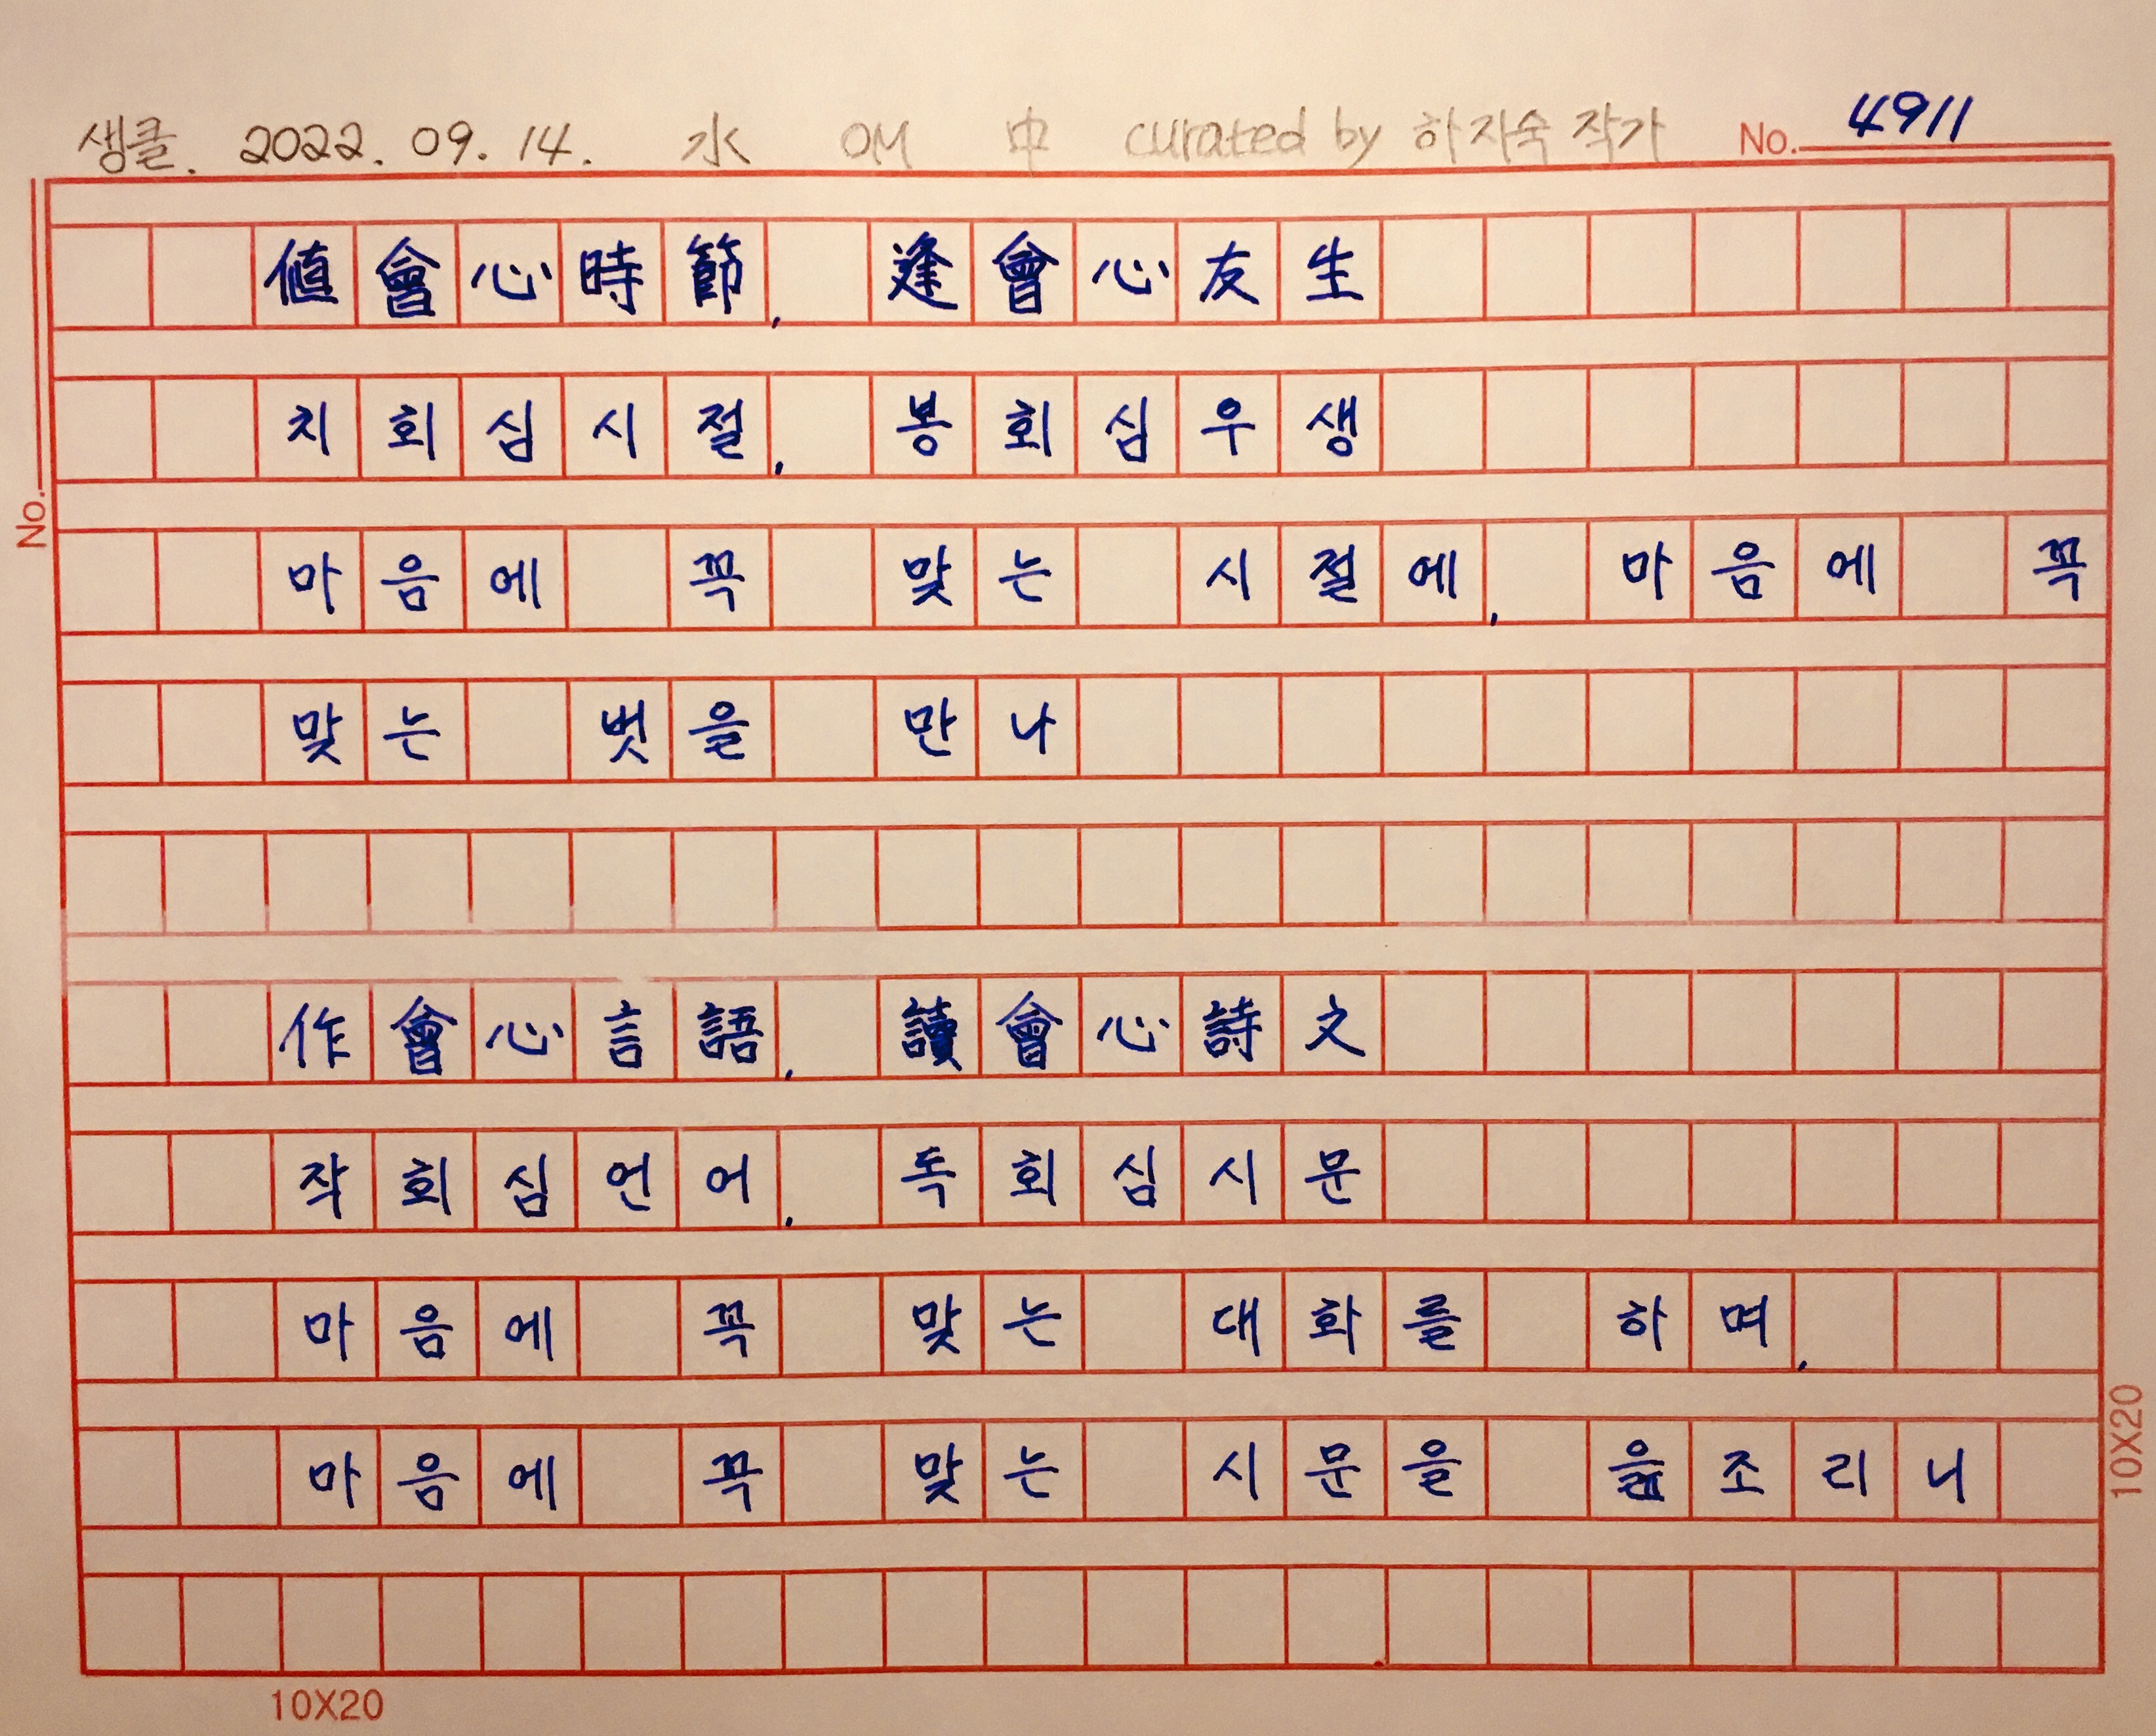 생클. 2022. 09. 14. 水 OM 中 curated by 하지숙 작가 No. 4911
值會心時節, 逢會心友生
치회심시절, 봉회심우생
No.
마음에 꼭 맞는 시절에, 마음에 꼭
맞는 벗을 만나
作會心言語, 讀會心詩文
작회심언어, 독회심시문
마음에 꼭 맞는 대화를 하며,
마음에 꼭 맞는 시문을 읊조리니
10X20
10X20